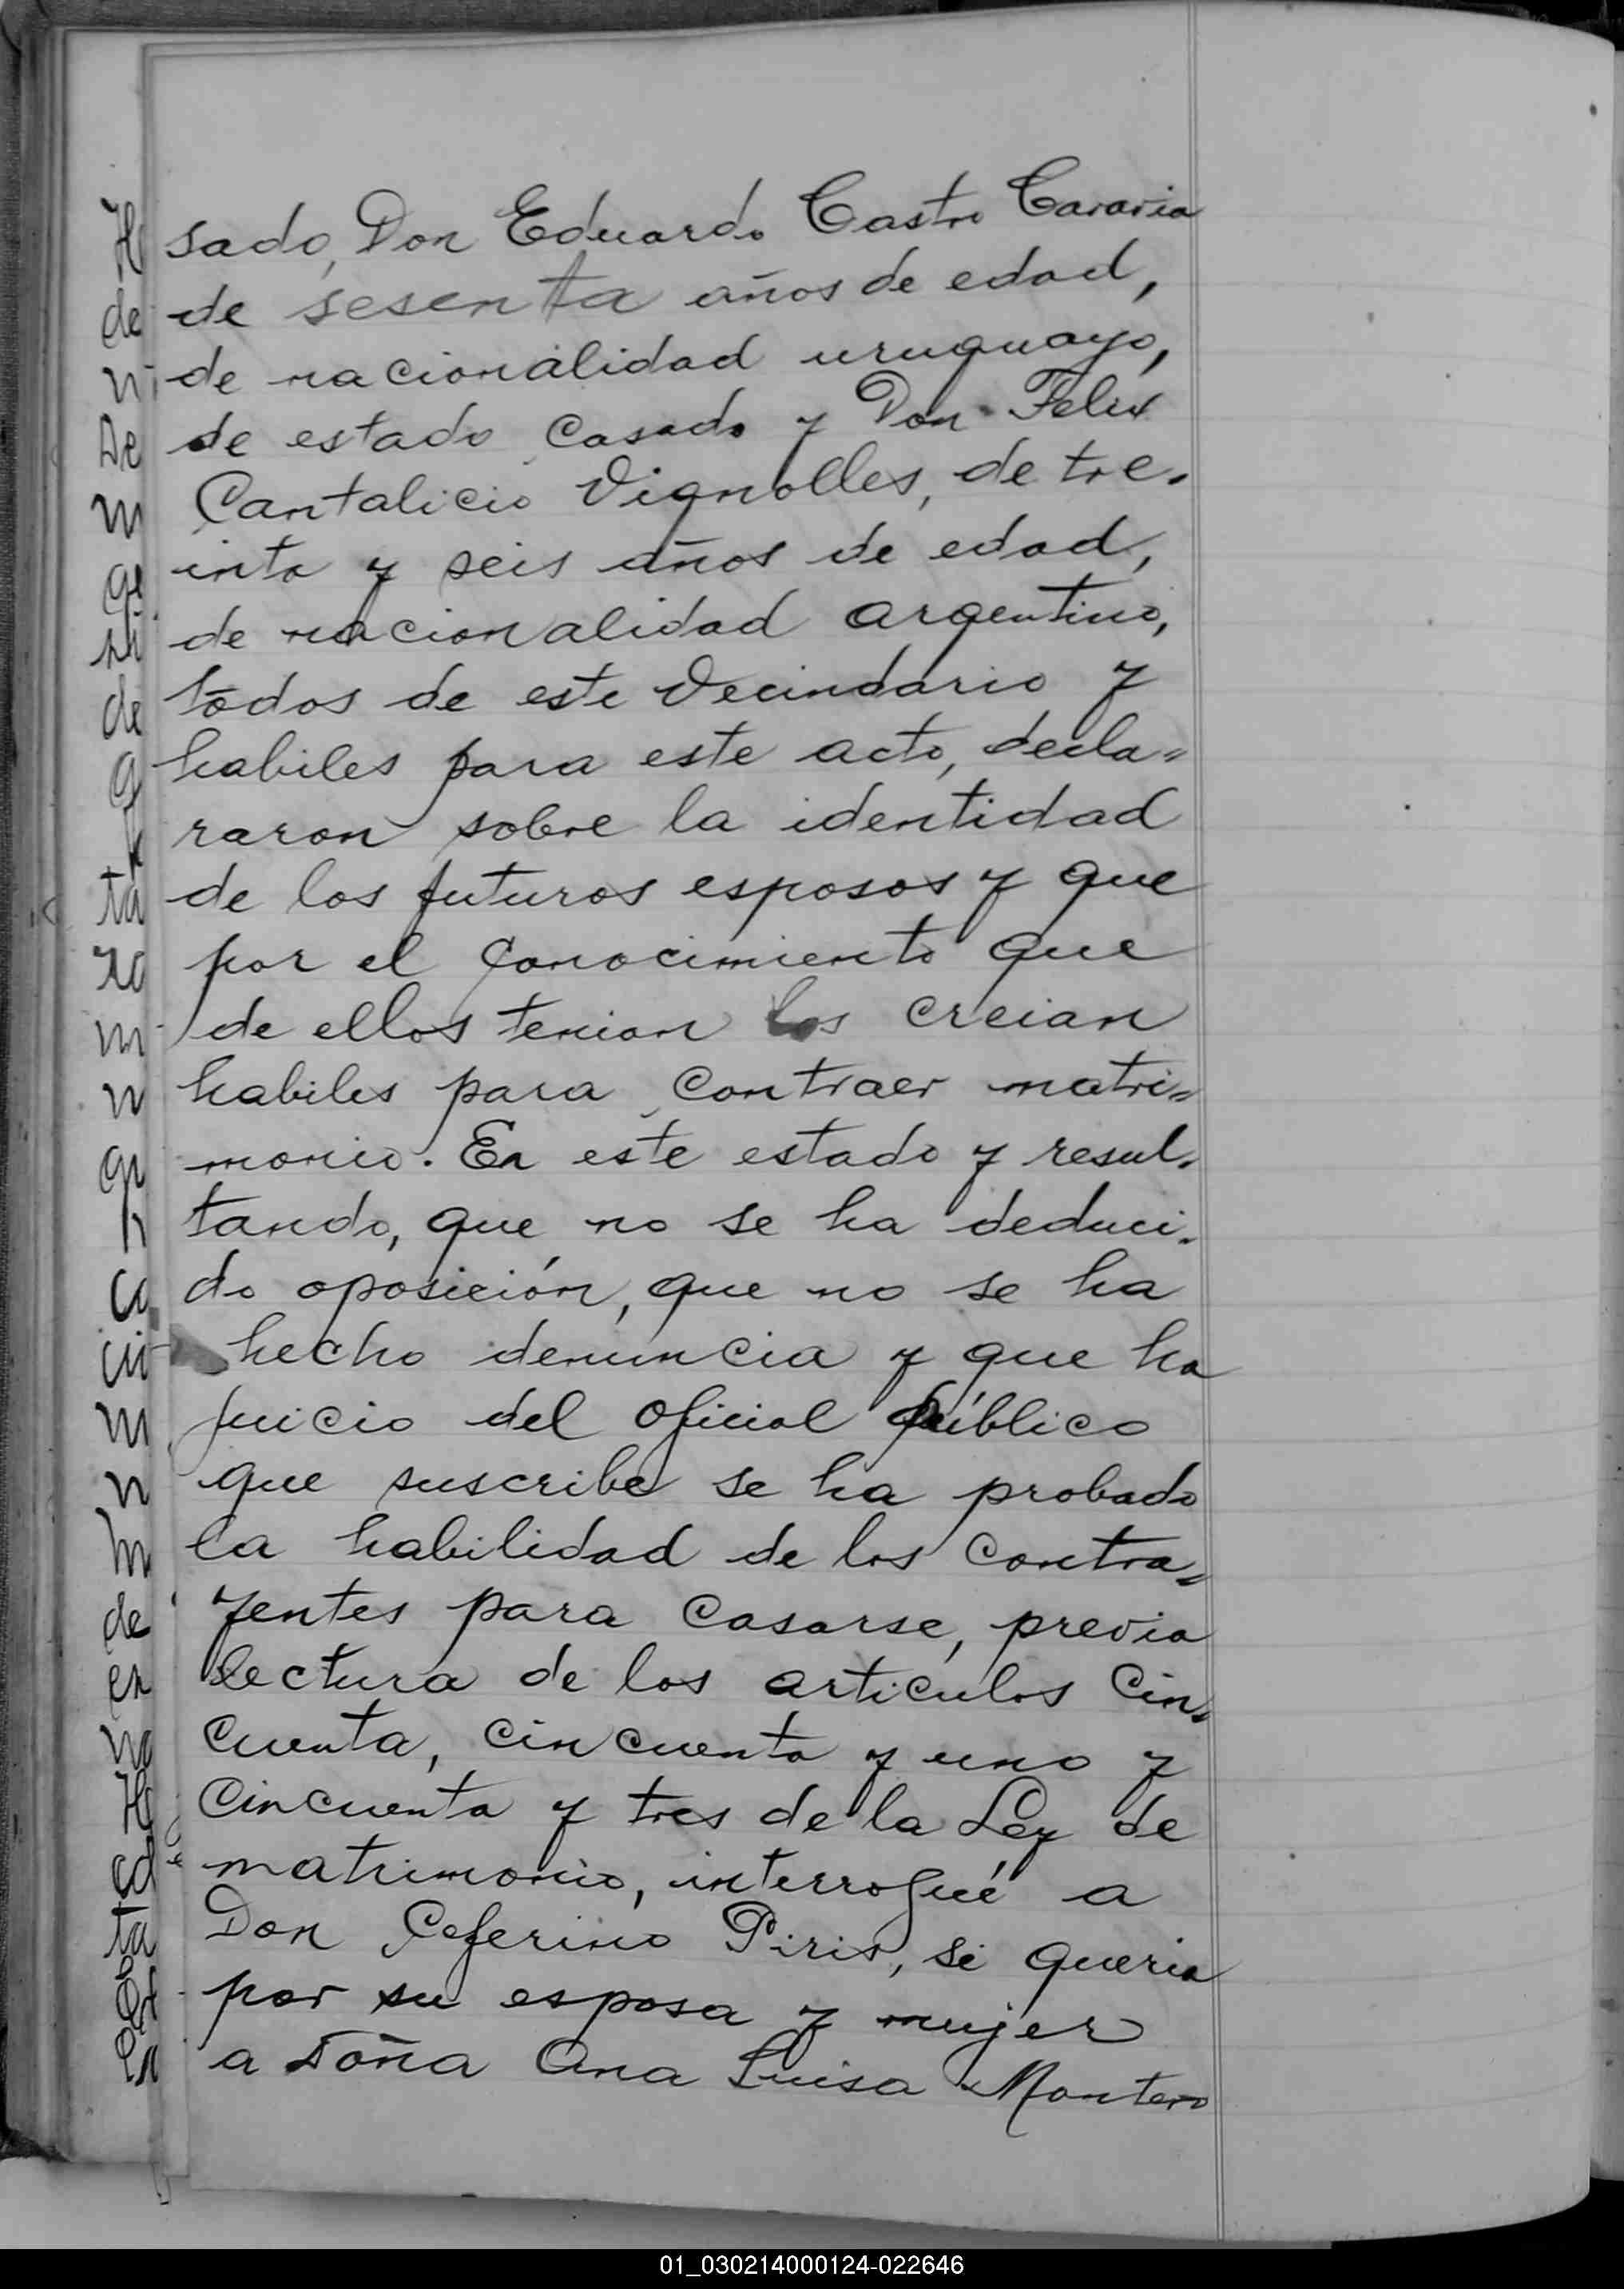 sado, Don Eduardo Castro Cararia
de sesenta años de edad,
de nacionalidad uruguayo,
de estado casado y Don Felix
Cantalicio Vignolles, de tre-
inta y seis años de edad,
de nacionalidad argentino,
todos de este vecindario y
habiles para este acto, decla=
raron sobre la identidad
de los futuros esposos y que
por el conocimiento que
de ellos tenian los creian
habiles para contraer matri=
monio. En este estado y resul-
tando, que no se ha deduci-
do oposición, que no se ha
hecho denuncia y que ha
juicio del oficial público
que suscribe se ha probado
la habilidad de los contra=
yentes para casarse, previa
lectura de los articulos cin=
cuenta, cincuenta y uno y
cincuenta y tres de la Ley de
matrimonio, interrogué a
Don Ceferino Piris, si queria
por su esposa y mujer
a Doña Ana Luisa Montero
01_030214000124-022646